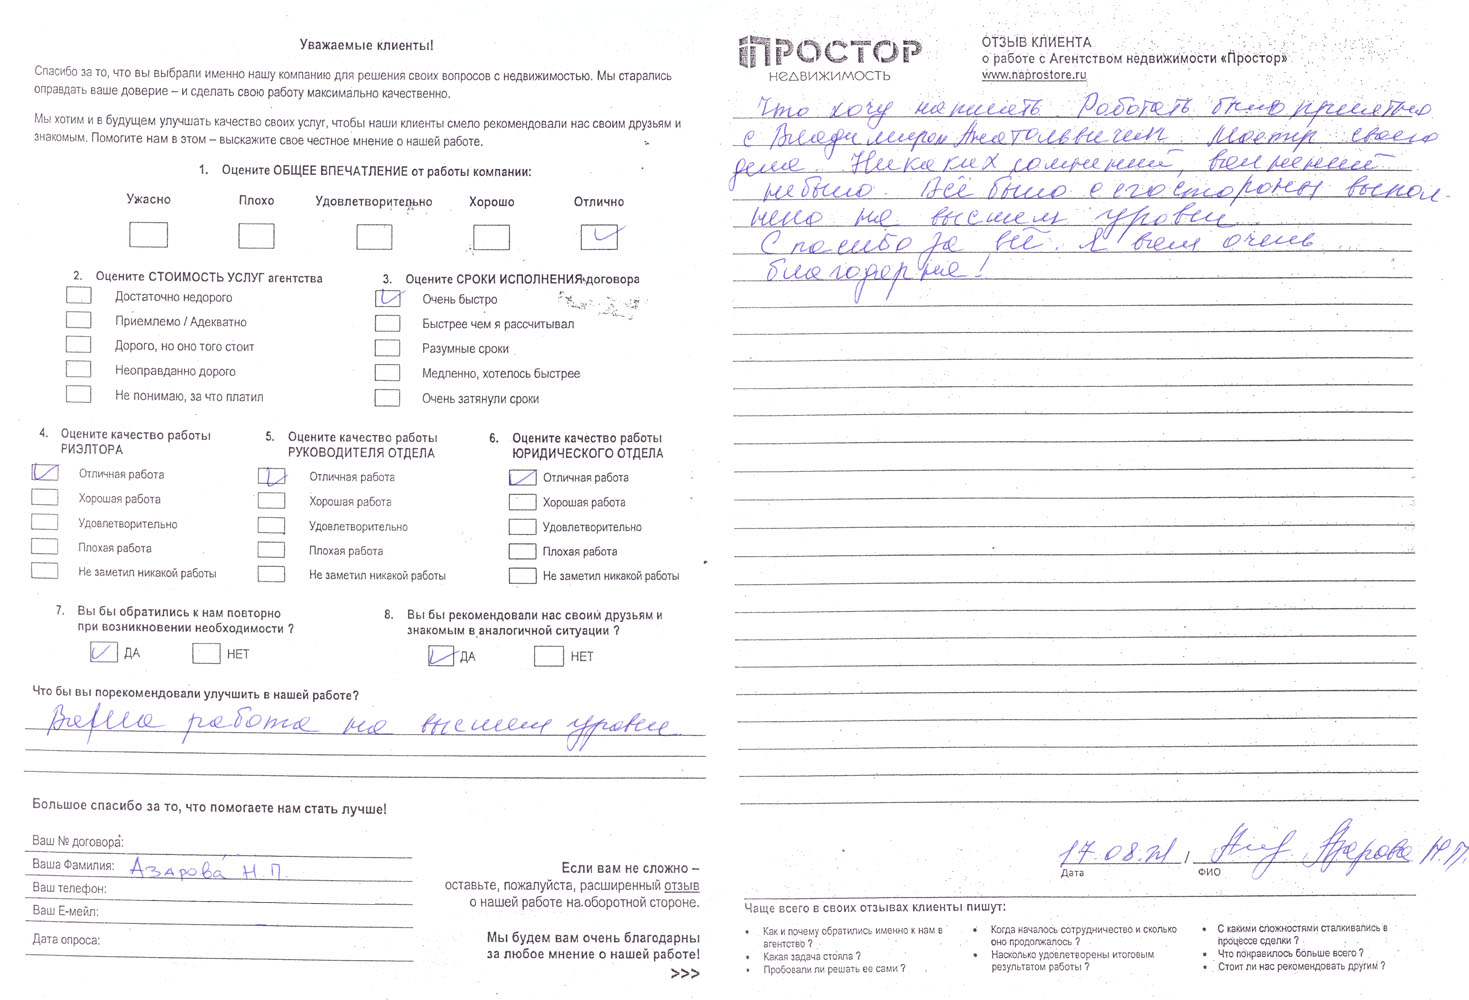 Уважаемые клиенты!
Спасибо за то, что вы выбрали именно нашу компанию для решения своих вопросов с недвижимостью. Мы старались
оправдать ваше доверие – и сделать свою работу максимально качественно.
Мы хотим и в будущем улучшать качество своих услуг, чтобы наши клиенты смело рекомендовали нас своим друзьям и
знакомым. Помогите нам в этом – выскажите свое честное мнение о нашей работе.
1. Оцените ОБЩЕЕ ВПЕЧАТЛЕНИЕ от работы компании:
Ужасно Плохо Удовлетворительно Хорошо Отлично
2. Оцените СТОИМОСТЬ УСЛУГ агентства
Достаточно недорого
Приемлемо / Адекватно
Дорого, но оно того стоит
Неоправданно дорого
Не понимаю, за что платил
3. Оцените СРОКИ ИСПОЛНЕНИЯ договора
Очень быстро
Быстрее чем я рассчитывал
Разумные сроки
Медленно, хотелось быстрее
Очень затянули сроки
4. Оцените качество работы
РИЭЛТОРА
Отличная работа
Хорошая работа
Удовлетворительно
Плохая работа
Не заметил никакой работы
5. Оцените качество работы
РУКОВОДИТЕЛЯ ОТДЕЛА
Отличная работа
Хорошая работа
Удовлетворительно
Плохая работа
Не заметил никакой работы
6. Оцените качество работы
ЮРИДИЧЕСКОГО ОТДЕЛА
Отличная работа
Хорошая работа
Удовлетворительно
Плохая работа
Не заметил никакой работы
7. Вы бы обратились к нам повторно
при возникновении необходимости ?
ДА НЕТ
8. Вы бы рекомендовали нас своим друзьям и
знакомым в аналогичной ситуации ?
ДА НЕТ
Что бы вы порекомендовали улучшить в нашей работе?
Ваша работа на высшем уровне
Большое спасибо за то, что помогаете нам стать лучше!
Ваш № договора:
Ваша Фамилия: Азарова Н.П.
Ваш телефон:
Ваш Е-мейл:
Дата опроса:
Если вам не сложно –
оставьте, пожалуйста, расширенный отзыв
о нашей работе на оборотной стороне.
Мы будем вам очень благодарны
за любое мнение о нашей работе!
>>>
ПРОСТОР
НЕДВИЖИМОСТЬ
ОТЗЫВ КЛИЕНТА
о работе с Агентством недвижимости «Простор»
www.naprostore.ru
Что хочу написать. Работать было приятно
с Владимиром Анатольевичем. Мастер своего
дела. Никаких сомнений, волнений
не было. Всё было с его стороны выпол-
нено на высшем уровне.
Спасибо за всё. Я вам очень
благодарна!
17.08.21 / Азарова Н.П.
Дата ФИО
Чаще всего в своих отзывах клиенты пишут:
• Как и почему обратились именно к нам в
агентство ?
• Какая задача стояла ?
• Пробовали ли решать ее сами ?
• Когда началось сотрудничество и сколько
оно продолжалось ?
• Насколько удовлетворены итоговым
результатом работы ?
• С какими сложностями сталкивались в
процессе сделки ?
• Что понравилось больше всего ?
• Стоит ли нас рекомендовать другим ?